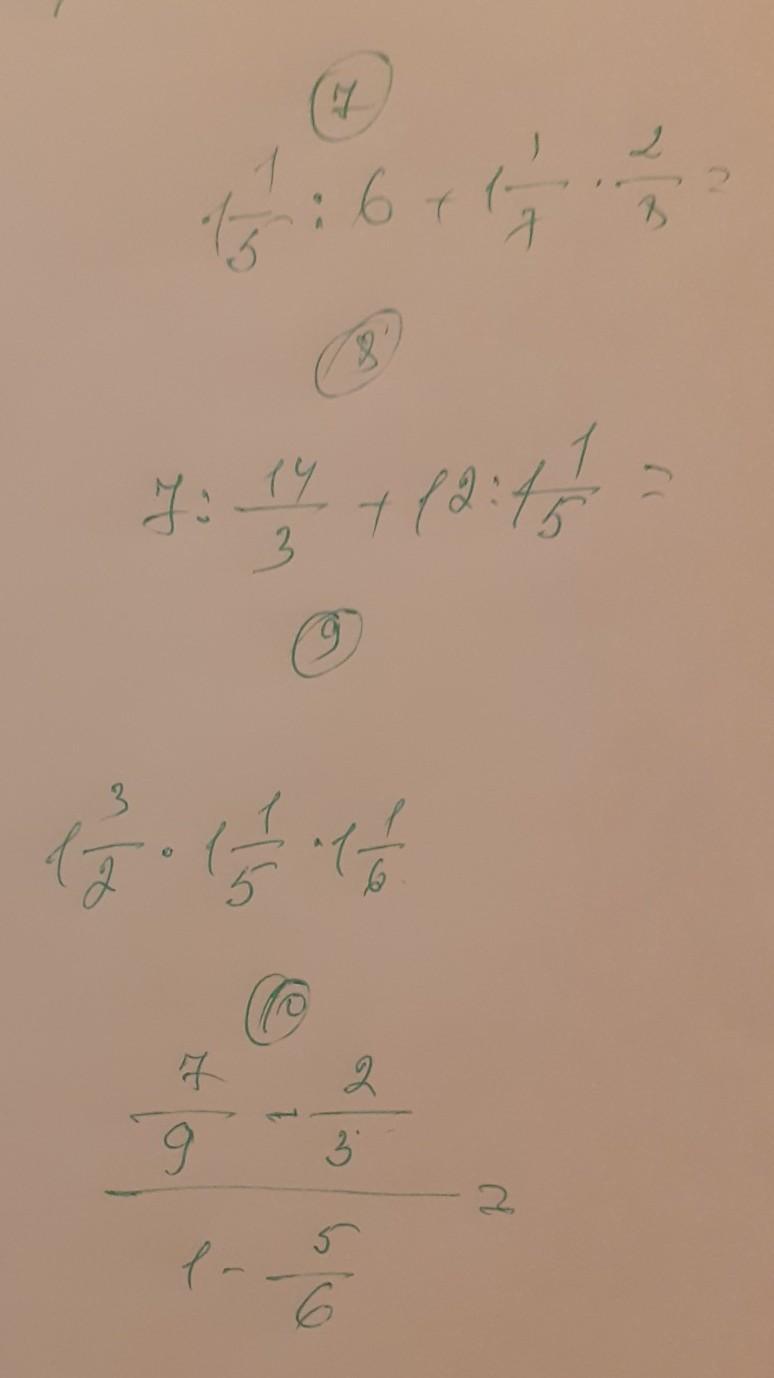 7
1 1/5 : 6 + 1 1/7 · 2/8 =
8
7 : 14/3 + 12 : 1 1/5 =
9
1 3/2 · 1 1/5 · 1 1/6
10
7/9 - 2/3
1 - 5/6 =